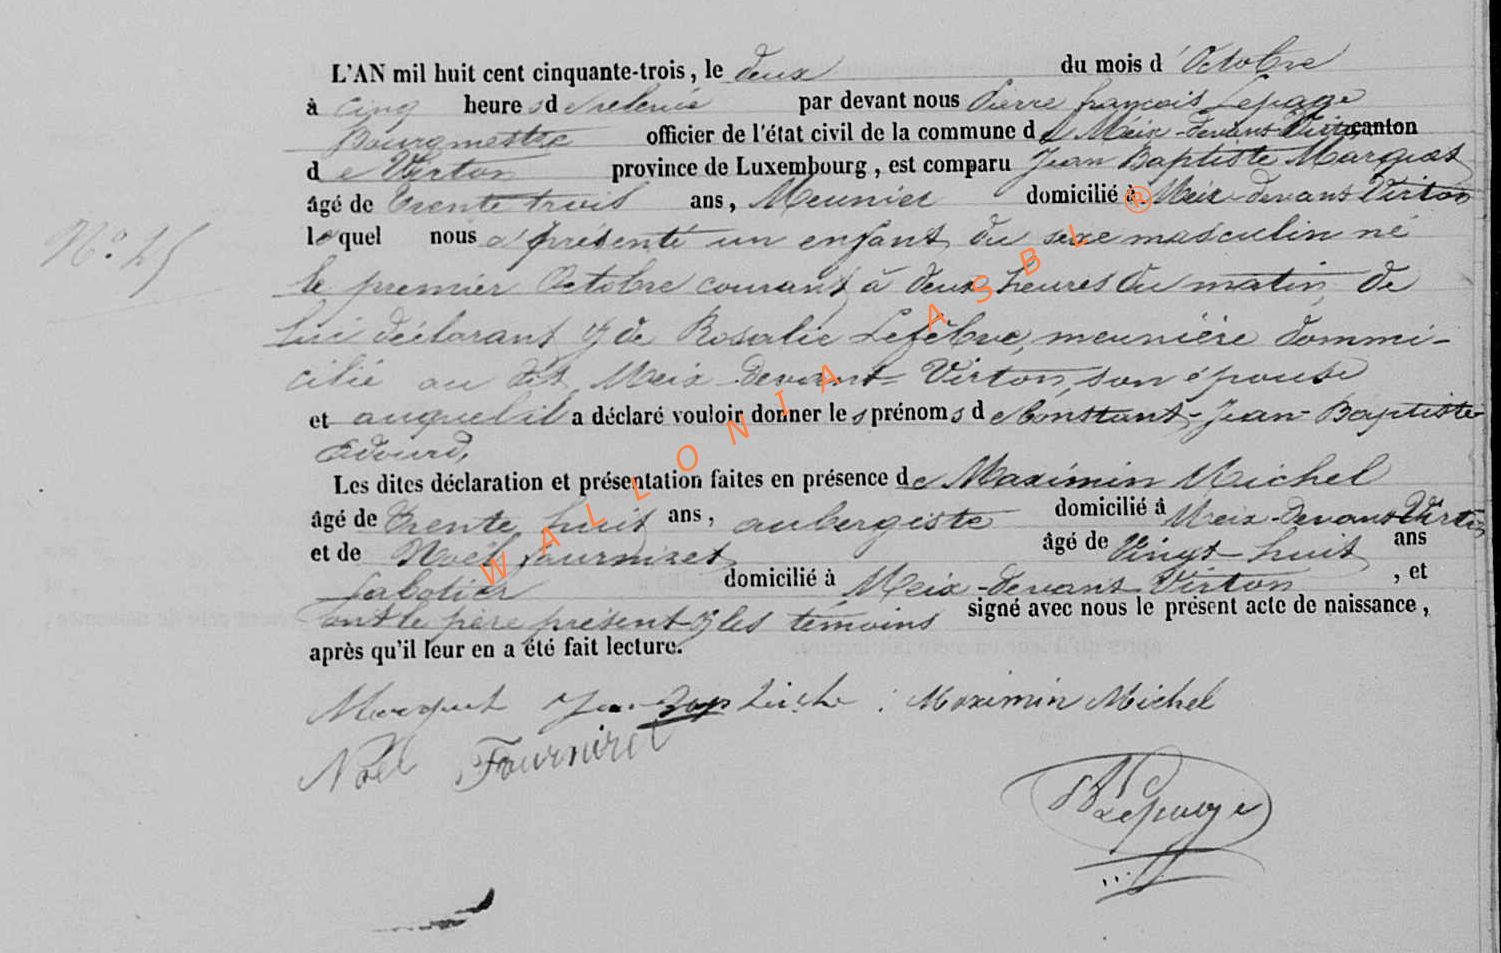 L'AN mil huit cent cinquante-trois, le deux du mois d'Octobre
à cinq heures de relevée par devant nous Pierre françois Lepage
Bourgmestre officier de l'état civil de la commune de Meix-devant-Virton canton
de Virton province de Luxembourg, est comparu Jean Baptiste
âgé de Trente trois ans, Meunier domicilié à Meix-devant Virton
lequel nous a présenté un enfant du sexe masculin né
le premier Octobre courant à deux heures du matin, de
lui déclarant & de Rosalie Lefèbvre, meunière dommi-
cilié au dit Meix-devant-Virton, son épouse
et auquel il a déclaré vouloir donner les prénoms de Constant-Jean-Baptiste-
Edouard,
Les dites déclaration et présentation faites en présence de Maximin Michel
âgé de Trente huit ans, aubergiste domicilié à Meix-devant-Virton
et de Noël fourniret âgé de Vingt-huit ans
sabotier domicilié à Meix-devant Virton, et
ont le père présent & les témoins signé avec nous le présent acte de naissance,
après qu'il leur en a été fait lecture.
N° 25
Maximin Michel
Noël Fourniret
Lepage
WALLONIA ASBL ®